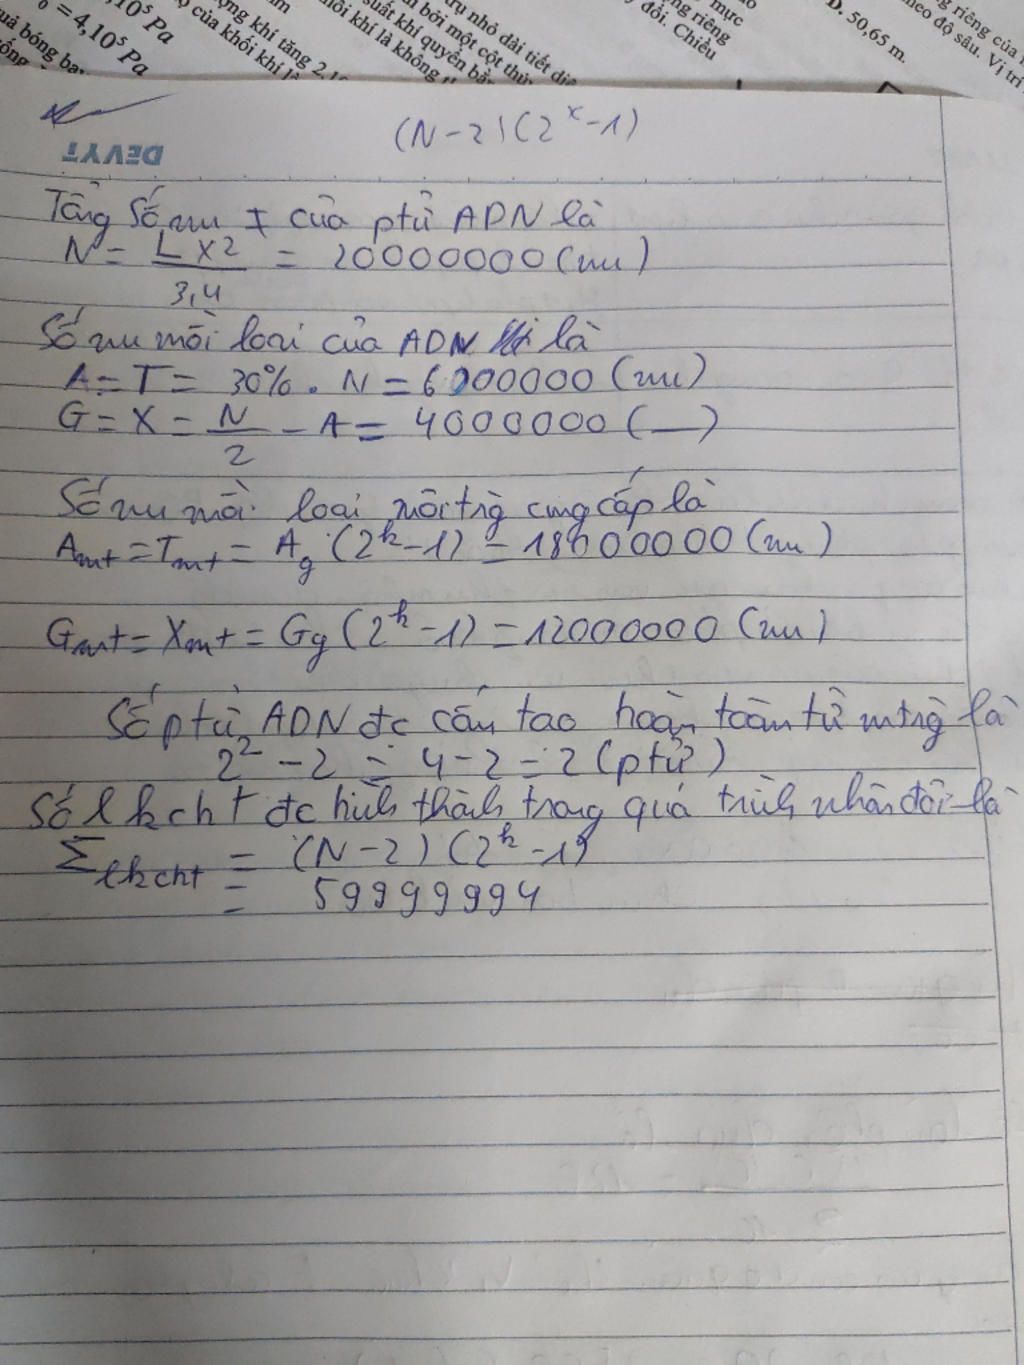 10⁵ Pa
= 4,10⁵ Pa
uả bóng ba
ợng khí tăng 2,1
ộ của khối khí l
hối khí là không
suất khí quyển bằ
n bởi một cột thủ
rụ nhỏ dài tiết diệ
y đổi. Chiều
ng riêng
mực
D. 50,65 m.
heo độ sâu. Vị trí
g riêng của
(N-2)(2ˣ-1)
DEVYT
Tổng số nu I của ptử ADN là
N = L x 2 / 3,4 = 20000000 (nu)
Số nu mỗi loại của ADN là
A = T = 30% . N = 6000000 (nu)
G = X = N/2 - A = 4000000 (—)
Số nu mỗi loại môi trg cung cấp là
Amt = Tmt = Ag (2ᵏ-1) = 18000000 (nu)
Gmt = Xmt = Gg (2ᵏ-1) = 12000000 (nu)
Số ptử ADN đc cấu tạo hoàn toàn từ mtrg là
2² - 2 = 4 - 2 = 2 (ptử)
Số lk cht đc hình thành trong quá trình nhân đôi là
Σlkcht = (N-2) (2ᵏ-1)
= 59999994